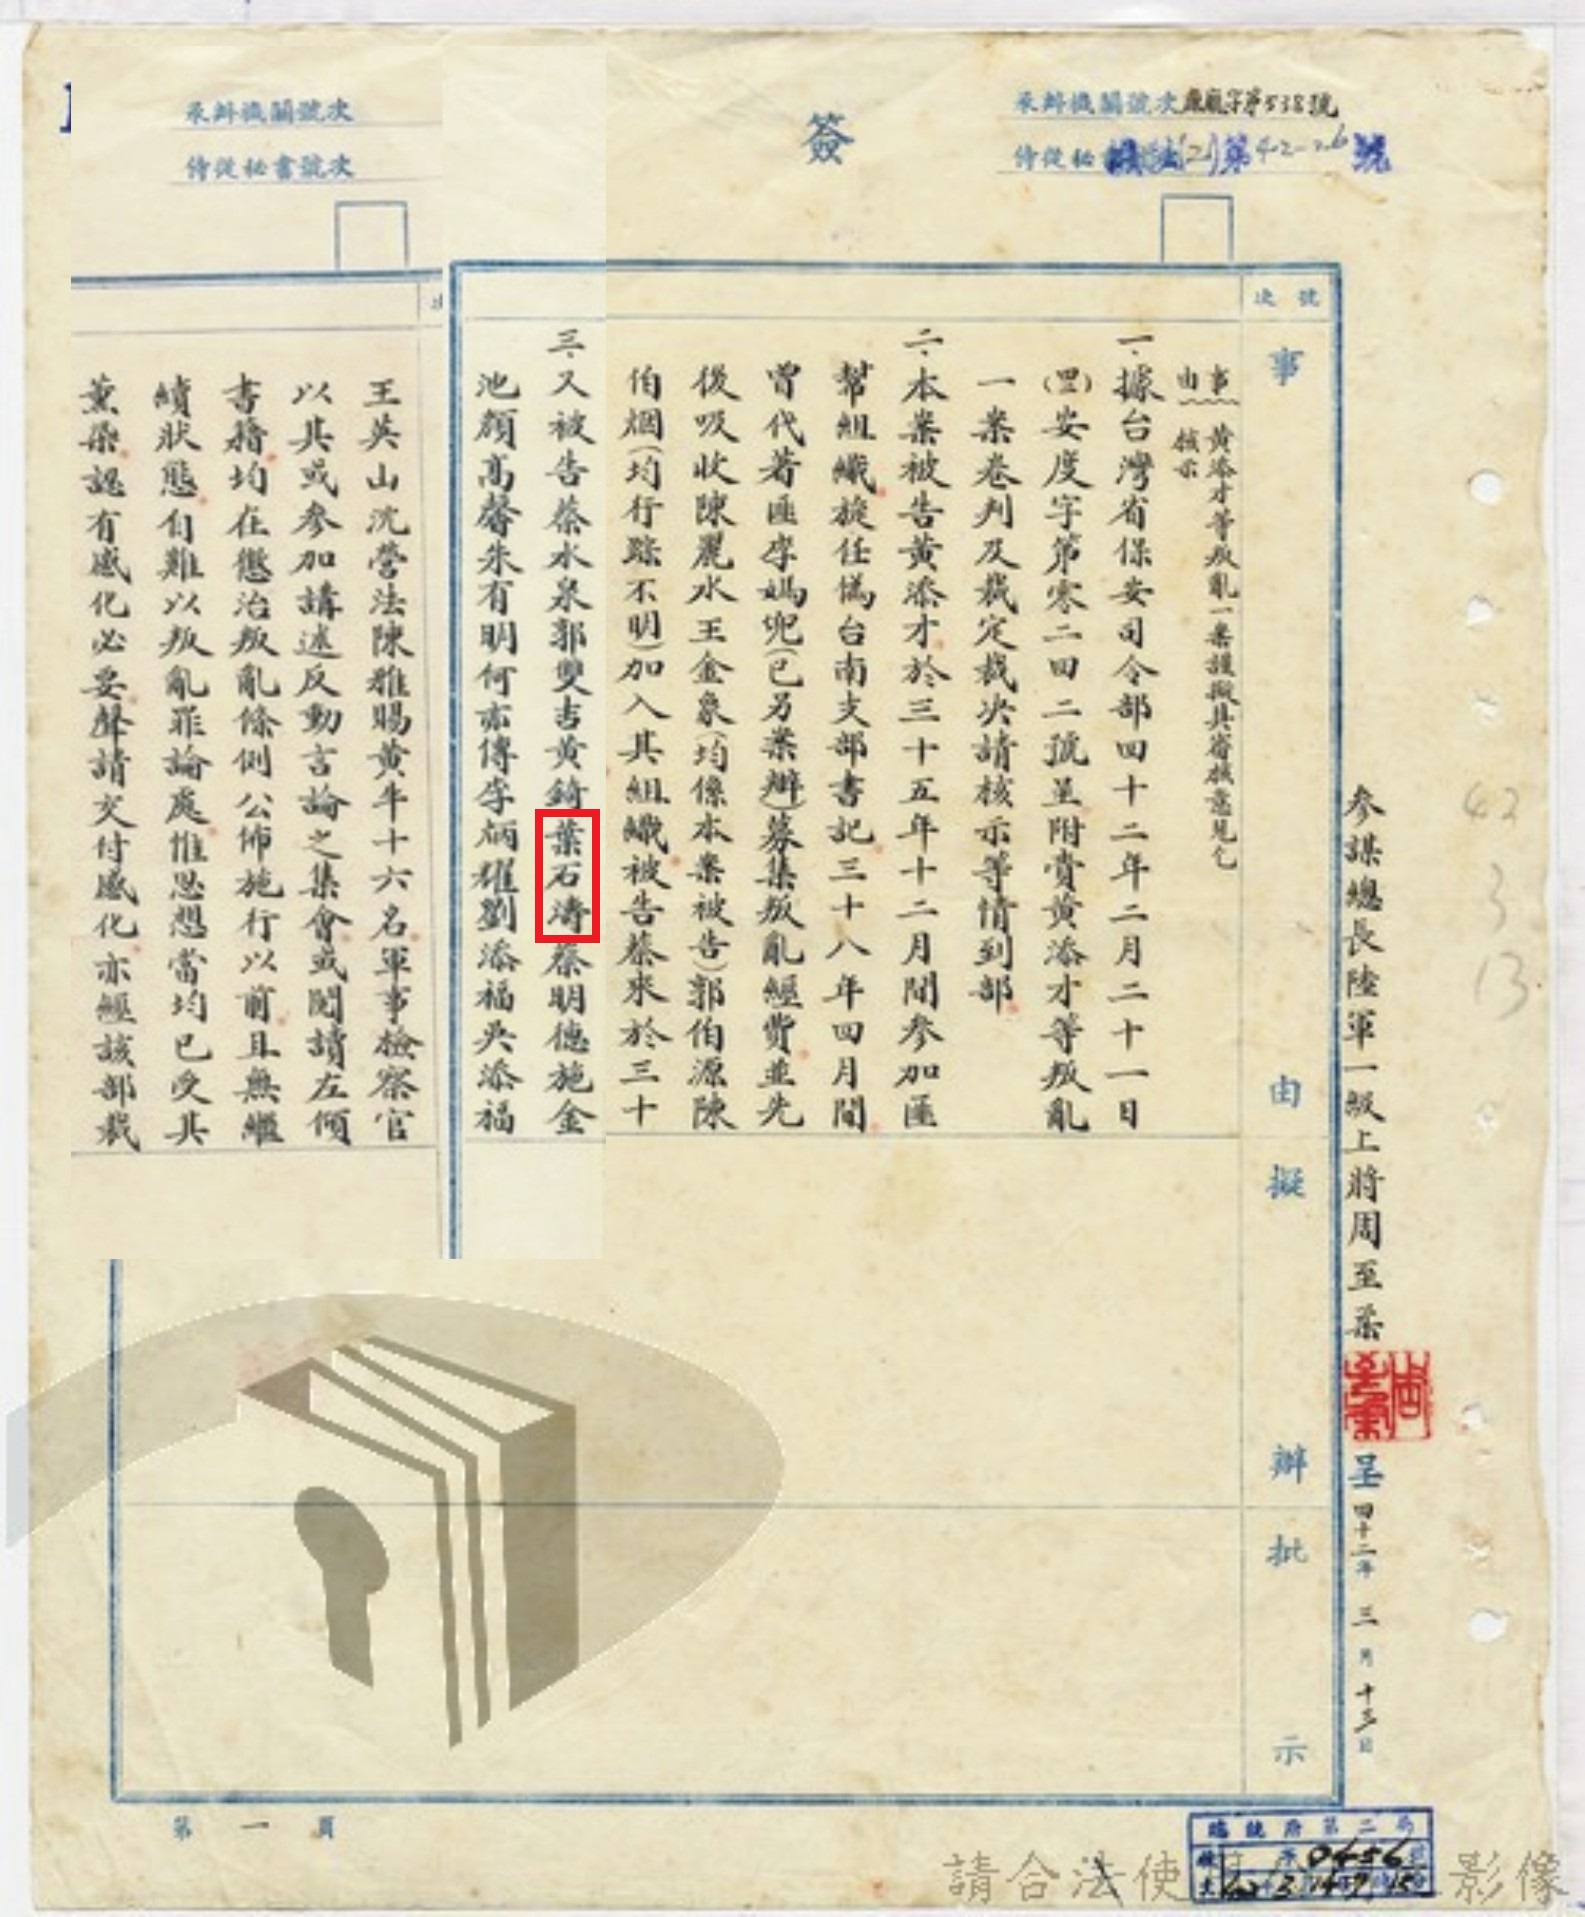 簽
承辦機關號次 廉龐字第538號
侍從秘書號次
(2)第42-26號
號次
事由擬辦批示
參謀總長陸軍一級上將周至柔
周至柔
呈 四十二年三月十三日
42
3
13
事由 黃添才等叛亂一案謹擬具審核意見乞
核示
一、據台灣省保安司令部四十二年二月二十一日
(四二)安度字第寒二四二號呈附賷黃添才等叛亂
一案卷判及裁定裁決請核示等情到部
二、本案被告黃添才於三十五年十二月間參加匪
幫組織旋任偽台南支部書記三十八年四月間
曾代著匪李媽兜(已另案辦)募集叛亂經費並先
後吸收陳麗水王金象(均係本案被告)郭伯源陳
伯烟(均行踪不明)加入其組織被告蔡來於三十
三、又被告蔡水泉郭雙吉黃錡葉石濤蔡明德施金
池顏高馨朱有明何亦傳李炳耀劉添福吳添福
承辦機關號次
侍從秘書號次
王英山沈營法陳雅賜黃牛十六名軍事檢察官
以其或參加講述反動言論之集會或閱讀左傾
書籍均在懲治叛亂條例公佈施行以前且無繼
續狀態自難以叛亂罪論處惟思想當均已受其
薰染認有感化必要聲請交付感化亦經該部裁
第一頁
總統府第二局
0456
請合法使 影像